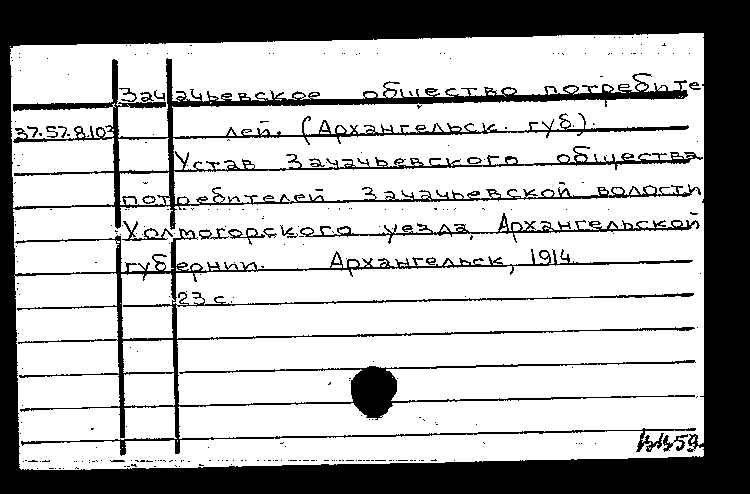 Зачачьевское общество потребите-
37.57.8.103 лей. (Архангельск. губ).
Устав Зачачьевского общества
потребителей Зачачьевской волости,
Холмогорского уезда, Архангельской
губернии. Архангельск, 1914.
23 с.